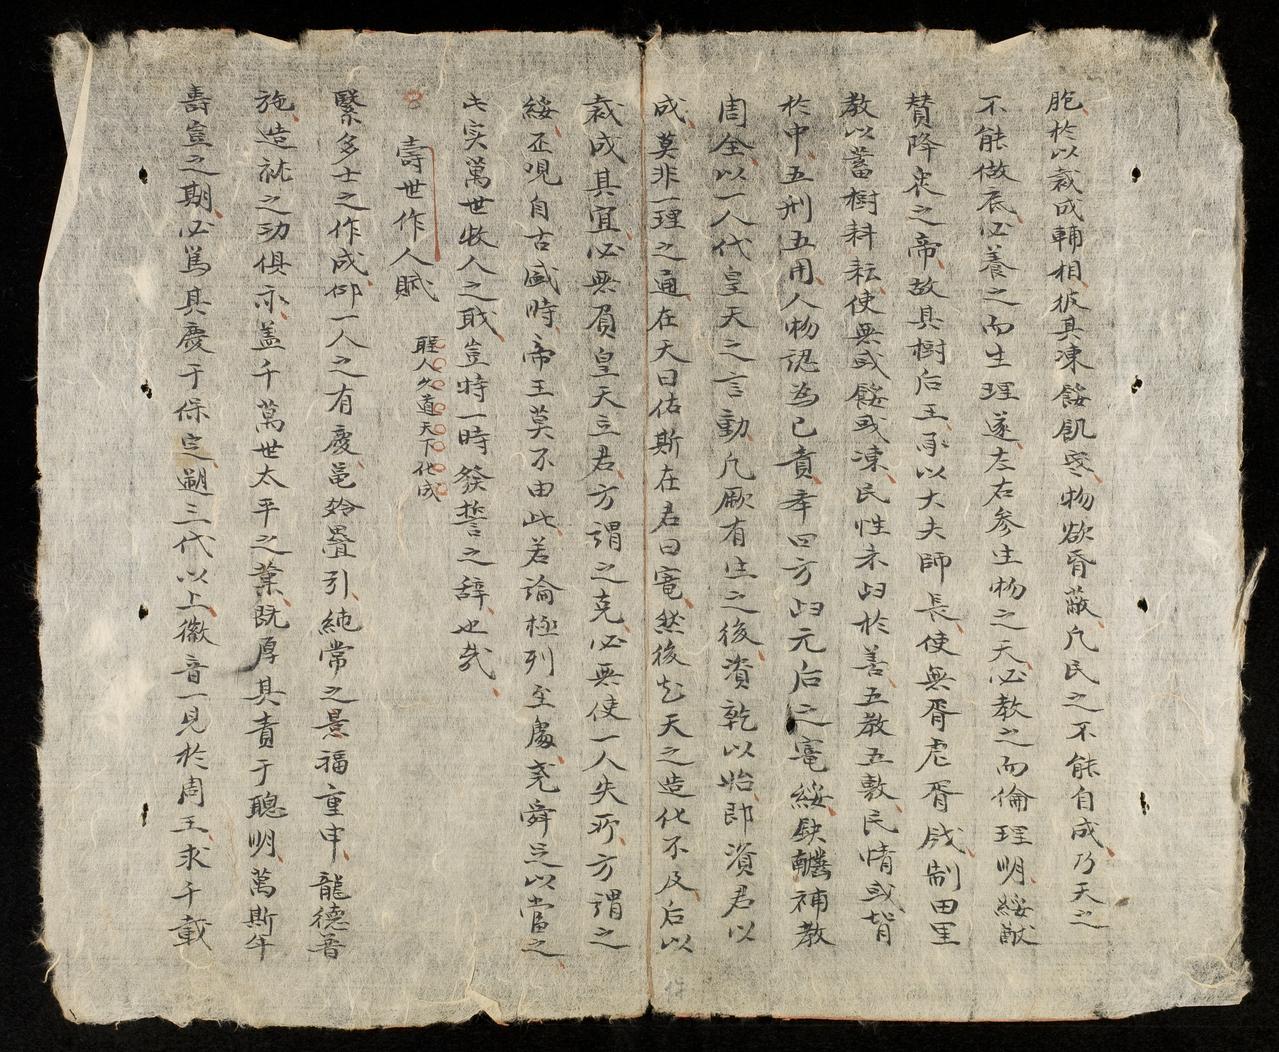 胞於以裁成輔相彼其凍餒飢寒物欲昏蔽凡民之不能自成乃天之
不能做底必養之而生理遂左右参生物之天必教之而倫理明綏猷
賛降衷之帝故其樹后王承以大夫師長使無胥虐胥戕制田里
教以蓄樹耕耘使無或餒或凍民性未歸於善五教五敷民情或背
於中五刑五用人物認為己責率四方歸元后之寛綏缺轤補教
周全以一人代皇天之言動凡厥有生之後資乾以始即資君以
成莫非一理之通在天曰佑斯在君曰寛然後起天之造化不及后以
裁成其宜必無負皇天立君方謂之克必無使一人失所方謂之
綏丕哯自古盛時帝王莫不由此若論極列至處堯舜足以當之
此实萬世牧人之戝豈特一時發誓之辞也哉
壽世作人賦 聖人久道天下化成
緊多士之作成仰一人之有慶邑姈疊引純常之景福重申龍德普
施造就之功俱亦盖千萬世太平之業既厚其責于聰明萬斯年
壽豈之期必篤其慶于保定遡三代以上徽音一見於周王求千載